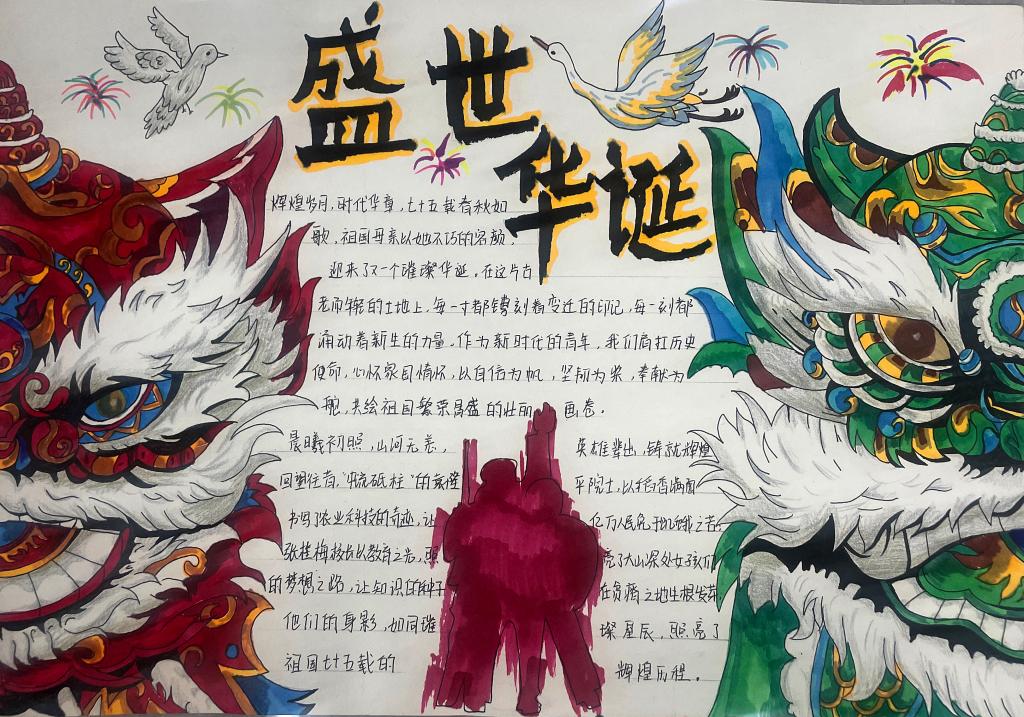 盛世
华诞
辉煌岁月，时代华章，七十五载春秋如
歌，祖国母亲以她不朽的容颜，
迎来了又一个璀璨华诞。在这片古
老而年轻的土地上，每一寸都镌刻着变迁的印记，每一刻都
涌动着新生的力量。作为新时代的青年，我们肩扛历史
使命，心怀家国情怀，以自信为帆，坚韧为桨，奉献为
舵，共绘祖国繁荣昌盛的壮丽画卷。
晨曦初照，山河无恙， 英雄辈出，铸就辉煌
回望往昔，"砥柱"的袁隆 平院士，以稻香满园
书写了农业科技的奇迹，让 亿万人民免于饥饿之苦。
张桂梅校长以教育之光，照 亮了大山深处女孩们
的梦想之路，让知识的种子 在贫瘠之地生根发芽
他们的身影，如同璀 璨星辰，照亮了
祖国七十五载的 辉煌历程。